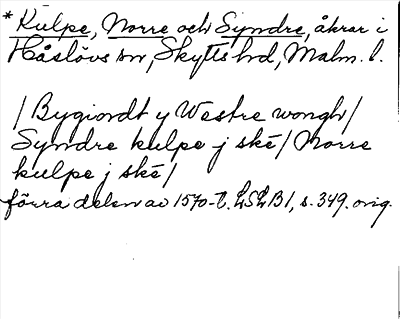 * Kulpe, Norre och Syndre, åkrar i
Håslövs sn, Skytts hd, Malm. l.
/ Bygiordt y Westre wongh/
Syndre kulpe j ske/ Norre
kulpe j ske/
förra delen av 1570-t. LSLB1, s. 349. orig.